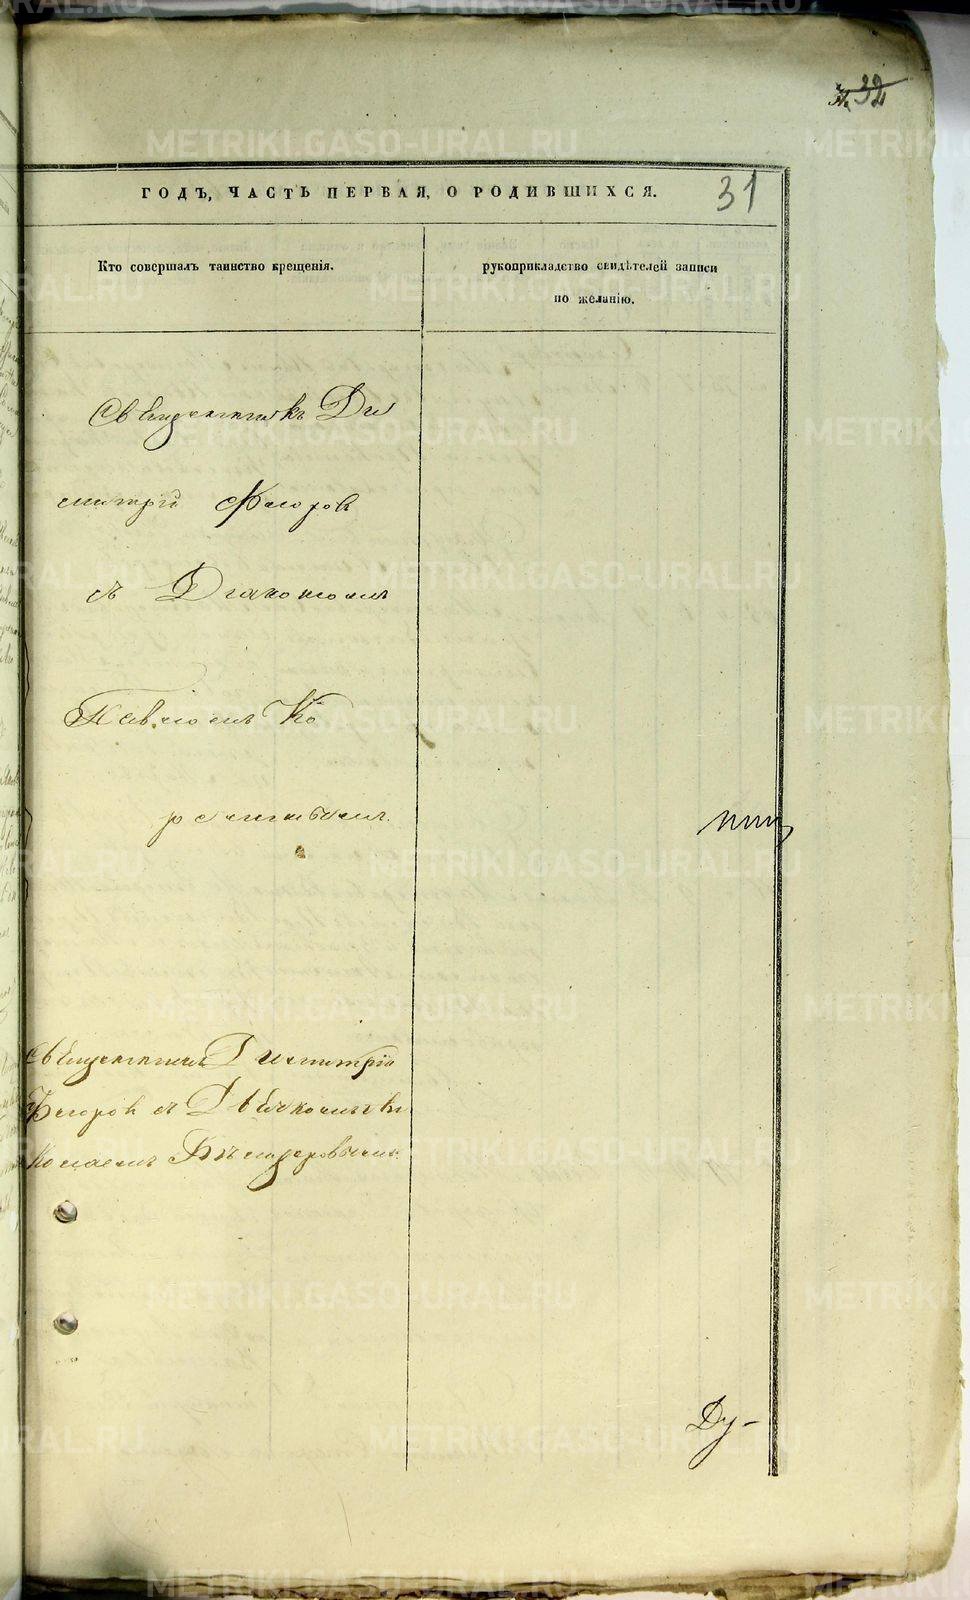 32
ГОДЪ, ЧАСТЬ ПЕРВАЯ, О РОДИВШИХСЯ.
31
Кто совершалъ таинство крещенія.
рукоприкладство свидѣтелей записи
по желанію.
Священникъ Ди
митрій Флоровъ
съ Діакономъ
Павломъ Ко
Священникъ Димитрій
Флоровъ съ Дьячкомъ Ни
колаемъ
Ду-
METRIKI.GASO-URAL.RU